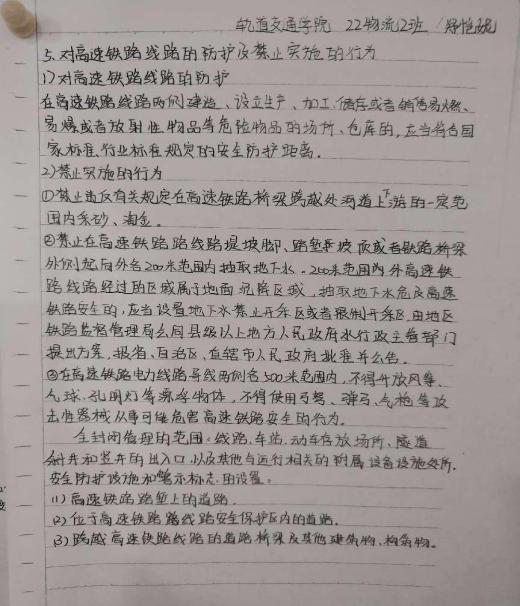 轨道交通学院 22物流2班
5.对高速铁路线路的防护及禁止实施的行为
1)对高速铁路线路的防护
在高速铁路线路两侧建造、设立生产、加工、储存或者销售易燃、
易爆或者放射性物品等危险物品的场所、仓库的,应当符合国
家标准、行业标准规定的安全防护距离.
2)禁止实施的行为
①禁止违反有关规定在高速铁路桥梁跨越处河道上下游的一定范
围内采砂、淘金。
②禁止在高速铁路路线路堤坡脚、路堑坡顶或者铁路桥梁
外侧起向外各200米范围内抽取地下水。200米范围内外高速铁
路线路经过的区域属于地面沉降区域,抽取地下水危及高速
铁路安全的,应当设置地下水禁止开采区或者限制开采区,由地区
铁路监督管理局会同县级以上地方人民政府水行政主管部门
提出方案,报省、自治区、直辖市人民政府批准并公告。
③在高速铁路电力线路导线两侧各500米范围内,不得升放风筝、
气球、孔明灯等漂浮物体,不得使用弓弩、弹弓、气枪等攻
击性器械从事可能危害高速铁路安全的行为.
全封闭管理的范围:线路、车站、动车存放场所、隧道
斜井和竖井的出入口,以及其他与运行相关的附属设备设施处所.
安全防护设施和警示标志的设置:
(1)高速铁路路堑上的道路.
(2)位于高速铁路路线路安全保护区内的道路.
(3)跨越高速铁路线路的道路桥梁及其他建筑物、构筑物。